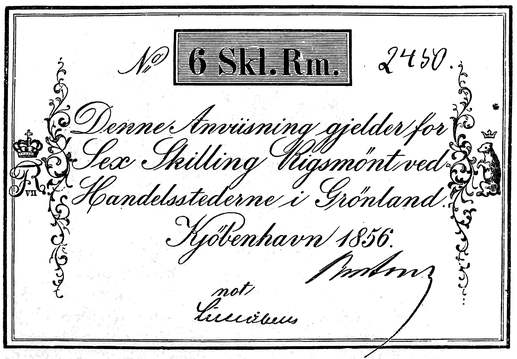 No 6 Skl. Rm. 2450.
Denne Anviisning gjelder for
Sex Skilling Rigsmönt ved
Handelsstederne i Grönland.
FR
VII
Kjöbenhavn 1856.
not